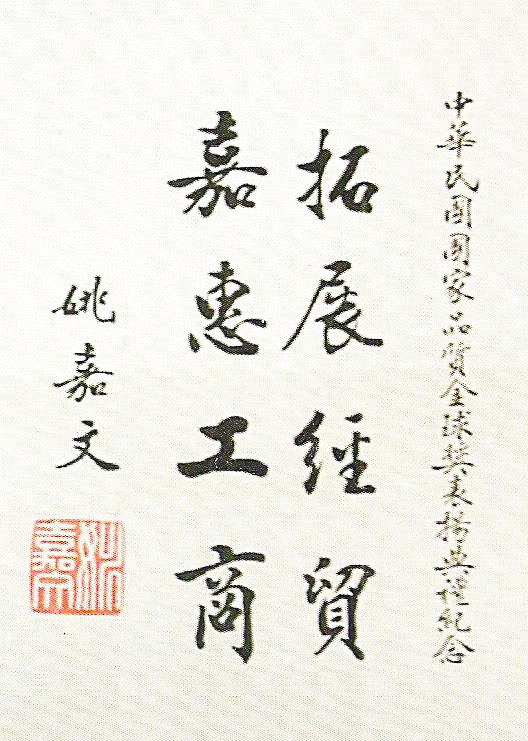 中華民国国家品質全球獎表揚典禮紀念
拓展經貿
嘉惠工商
姚嘉文
姚嘉文